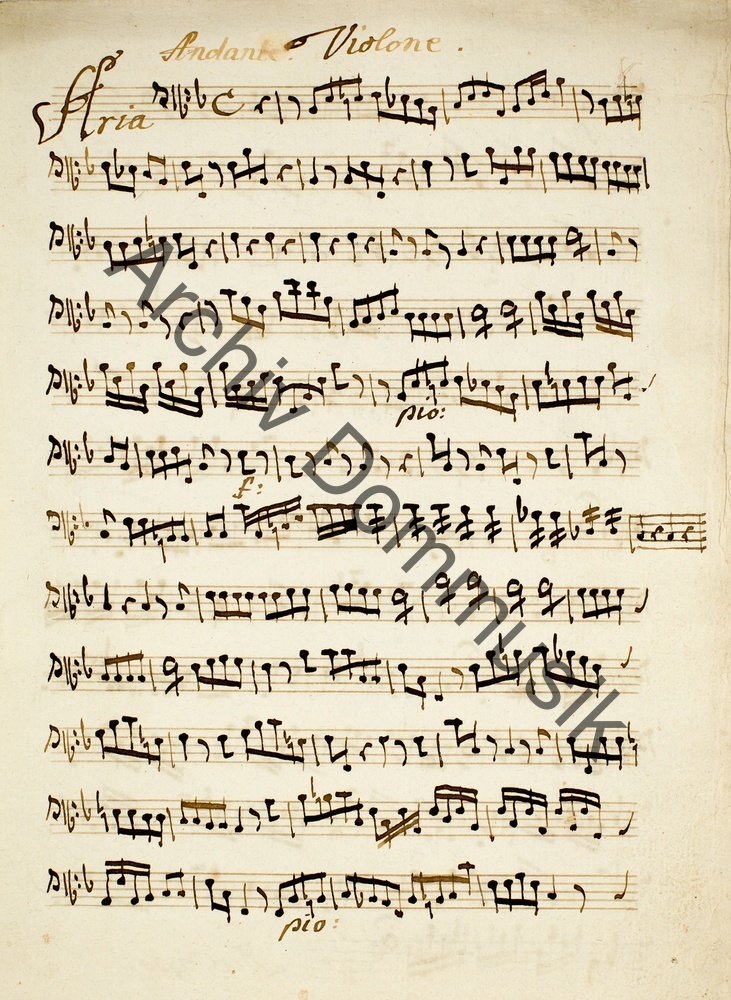 Andante. Violone.
Aria
pio:
f:
pio:
Archiv Dommusik